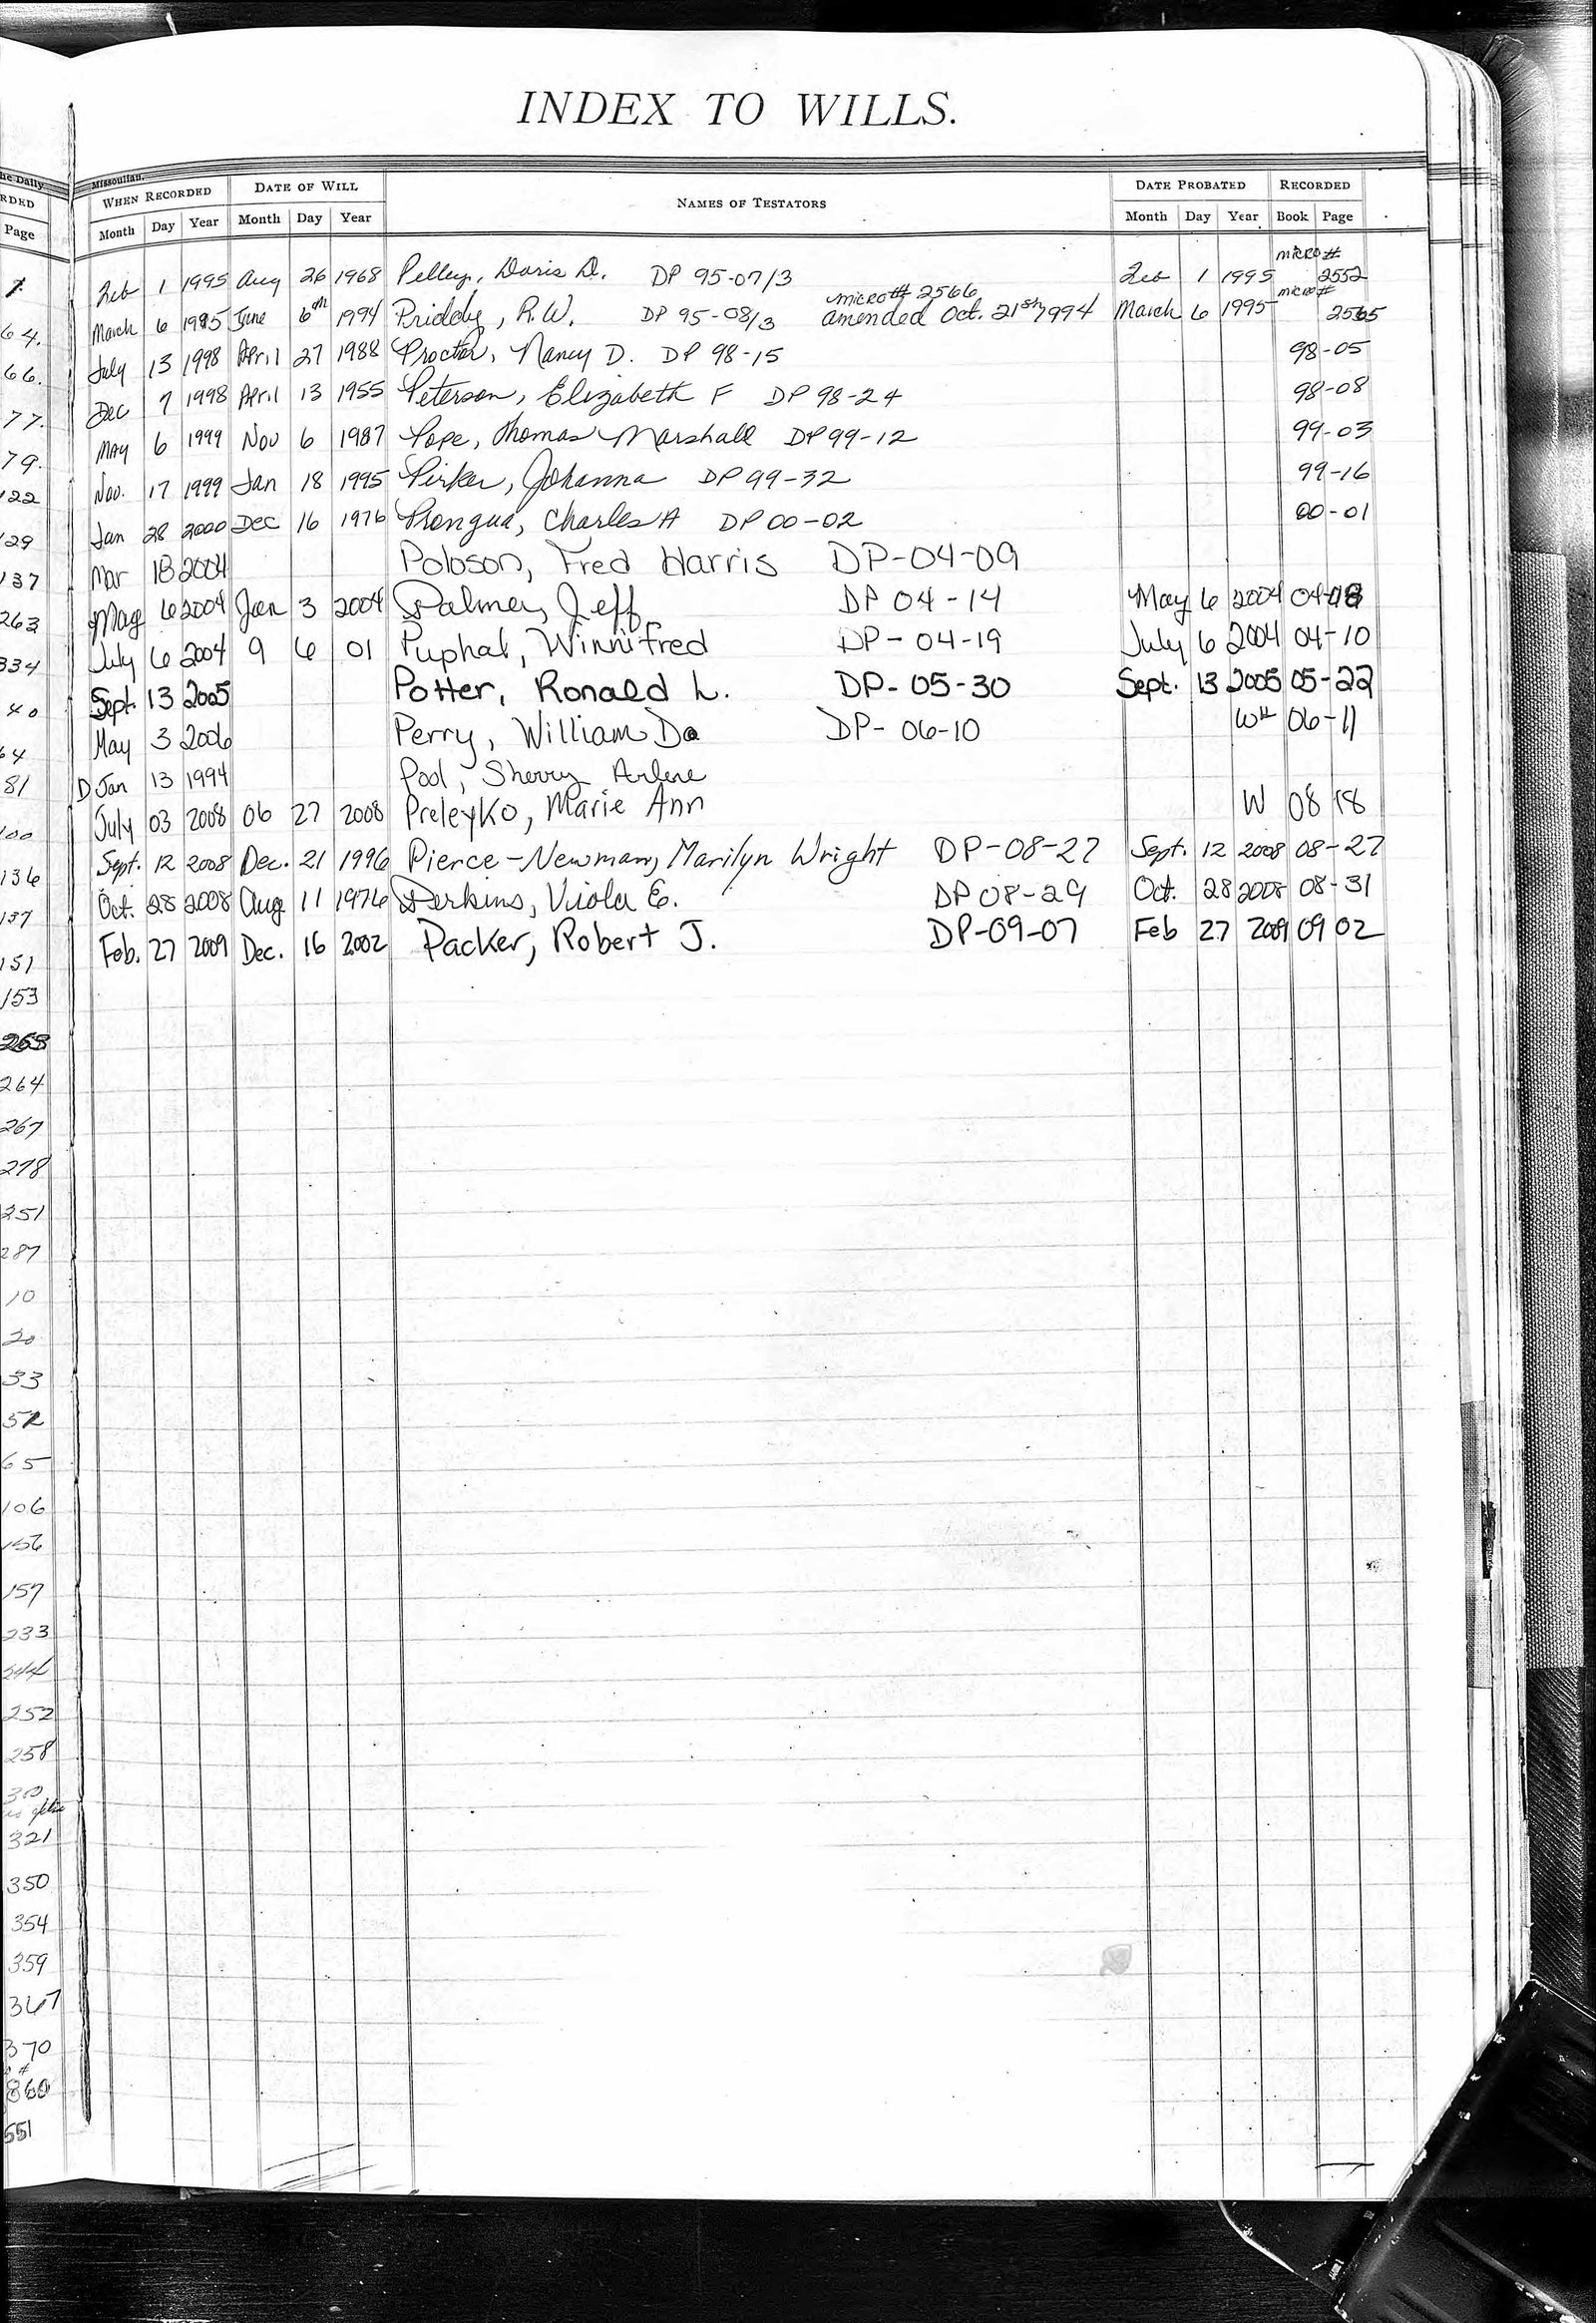 INDEX TO WILLS.
he Daily Missoulian.
RDED WHEN RECORDED DATE OF WILL NAMES OF TESTATORS DATE PROBATED RECORDED
Page Month Day Year Month Day Year Month Day Year Book Page
micro#
Feb 1 1995 Aug 26 1968 Pelley, Doris D. DP 95-07/3 Feb 1 1995 2552
micro# 2566 micro#
64. March 6 1995 June 6th 1994 Priddy, R.W. DP 95-08/3 amended Oct. 21st, 1994 March 6 1995 2565
66. July 13 1998 April 27 1988 Proctor, Nancy D. DP 98-15 98-05
77. Dec 7 1998 April 13 1955 Peterson, Elizabeth F DP 98-24 98-08
79. May 6 1999 Nov 6 1987 Pope, Thomas Marshall DP 99-12 99-03
122 Nov. 17 1999 Jan 18 1995 Pirker, Johanna DP 99-32 99-16
129 Jan 28 2000 Dec 16 1976 Prongua, Charles A DP 00-02 00-01
137 Mar 18 2004 Poloson, Fred Harris DP-04-09
263 May 6 2004 Jan 3 2004 Palmer, Jeff DP 04-14 May 6 2004
334 July 6 2004 9 6 01 Puphal, Winnifred DP-04-19 July 6 2004 04-10
40 Sept. 13 2005 Potter, Ronald L. DP-05-30 Sept. 13 2005 05-22
64 May 3 2006 Perry, William Do DP-06-10 W# 06-11
81 D Jan 13 1994 Pool, Sherry Arlene
100 July 03 2008 06 27 2008 Preleyko, Marie Ann W 08 18
136 Sept. 12 2008 Dec. 21 1996 Pierce-Newman, Marilyn Wright DP-08-27 Sept. 12 2008 08-27
137 Oct. 28 2008 Aug 11 1976 Perkins, Viola E. DP 08-29 Oct. 28 2008 08-31
151 Feb. 27 2009 Dec. 16 2002 Packer, Robert J. DP-09-07 Feb 27 2009 09 02
153
263
264
267
278
251
287
10
20
33
52
65
106
156
157
233
244
252
258
310
321
350
354
359
367
370
#
860
551